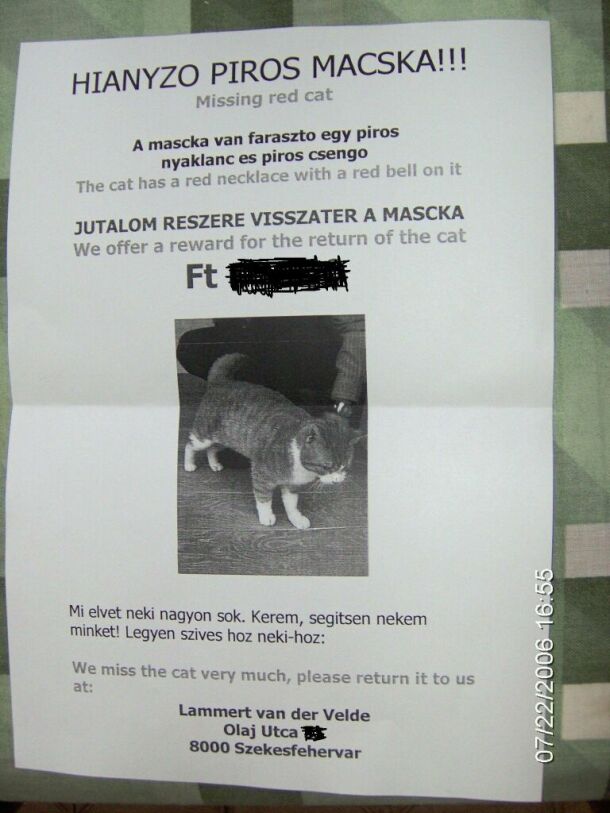 HIANYZO PIROS MACSKA!!!
Missing red cat
A mascka van faraszto egy piros
nyaklanc es piros csengo
The cat has a red necklace with a red bell on it
JUTALOM RESZERE VISSZATER A MASCKA
We offer a reward for the return of the cat
Ft
Mi elvet neki nagyon sok. Kerem, segitsen nekem
minket! Legyen szives hoz neki-hoz:
We miss the cat very much, please return it to us
at:
Lammert van der Velde
Olaj Utca
8000 Szekesfehervar
07/22/2006 16:55